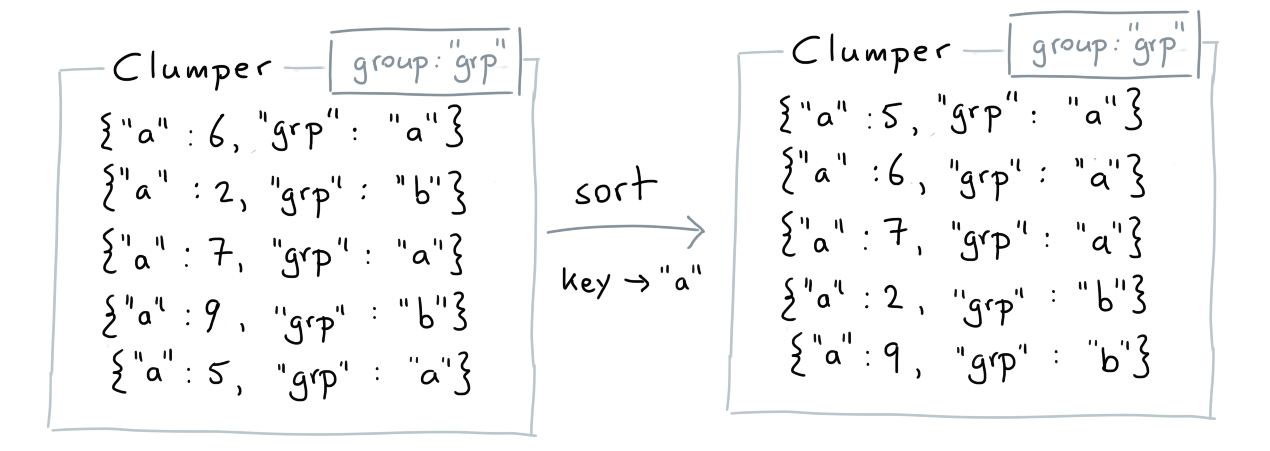 Clumper group:"grp"
{"a" : 6, "grp" : "a"}
{"a" : 2, "grp" : "b"}
{"a" : 7, "grp" : "a"}
{"a" : 9 , "grp" : "b"}
{"a" : 5, "grp" : "a"}
sort
key → "a"
Clumper group:"grp"
{"a" : 5, "grp" : "a"}
{"a" : 6, "grp" : "a"}
{"a" : 7, "grp" : "a"}
{"a" : 2, "grp" : "b"}
{"a" : 9, "grp" : "b"}